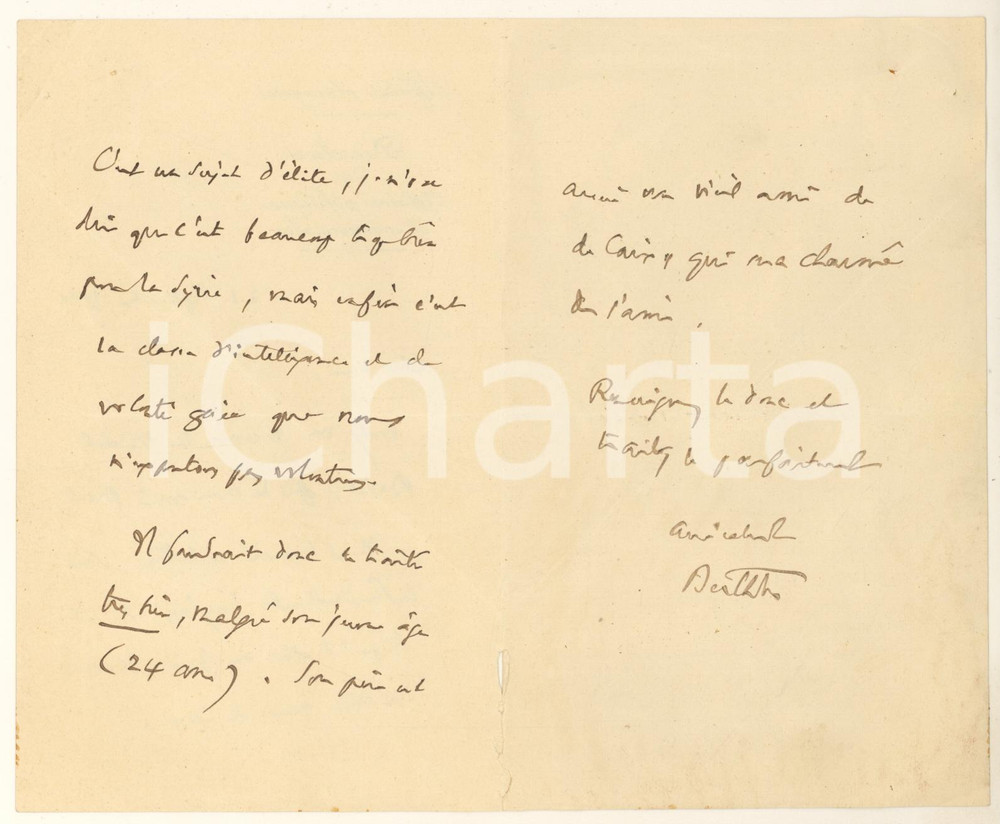 C'est un sujet d'élite, je n'ose
dire que c'est beaucoup trop bien
pour la Syrie, mais enfin c'est
la classe d'intelligence et de
que nous
n'exportons pas volontiers.
Il faudrait donc le traiter
très bien, malgré son jeune âge
(24 ans). Son père est
aussi un vieil ami de
de Caix et qui m'a chargé
de l'ami.
Renseignez le donc et
traitez le parfaitement
amicalement
Berthelot
iCharta